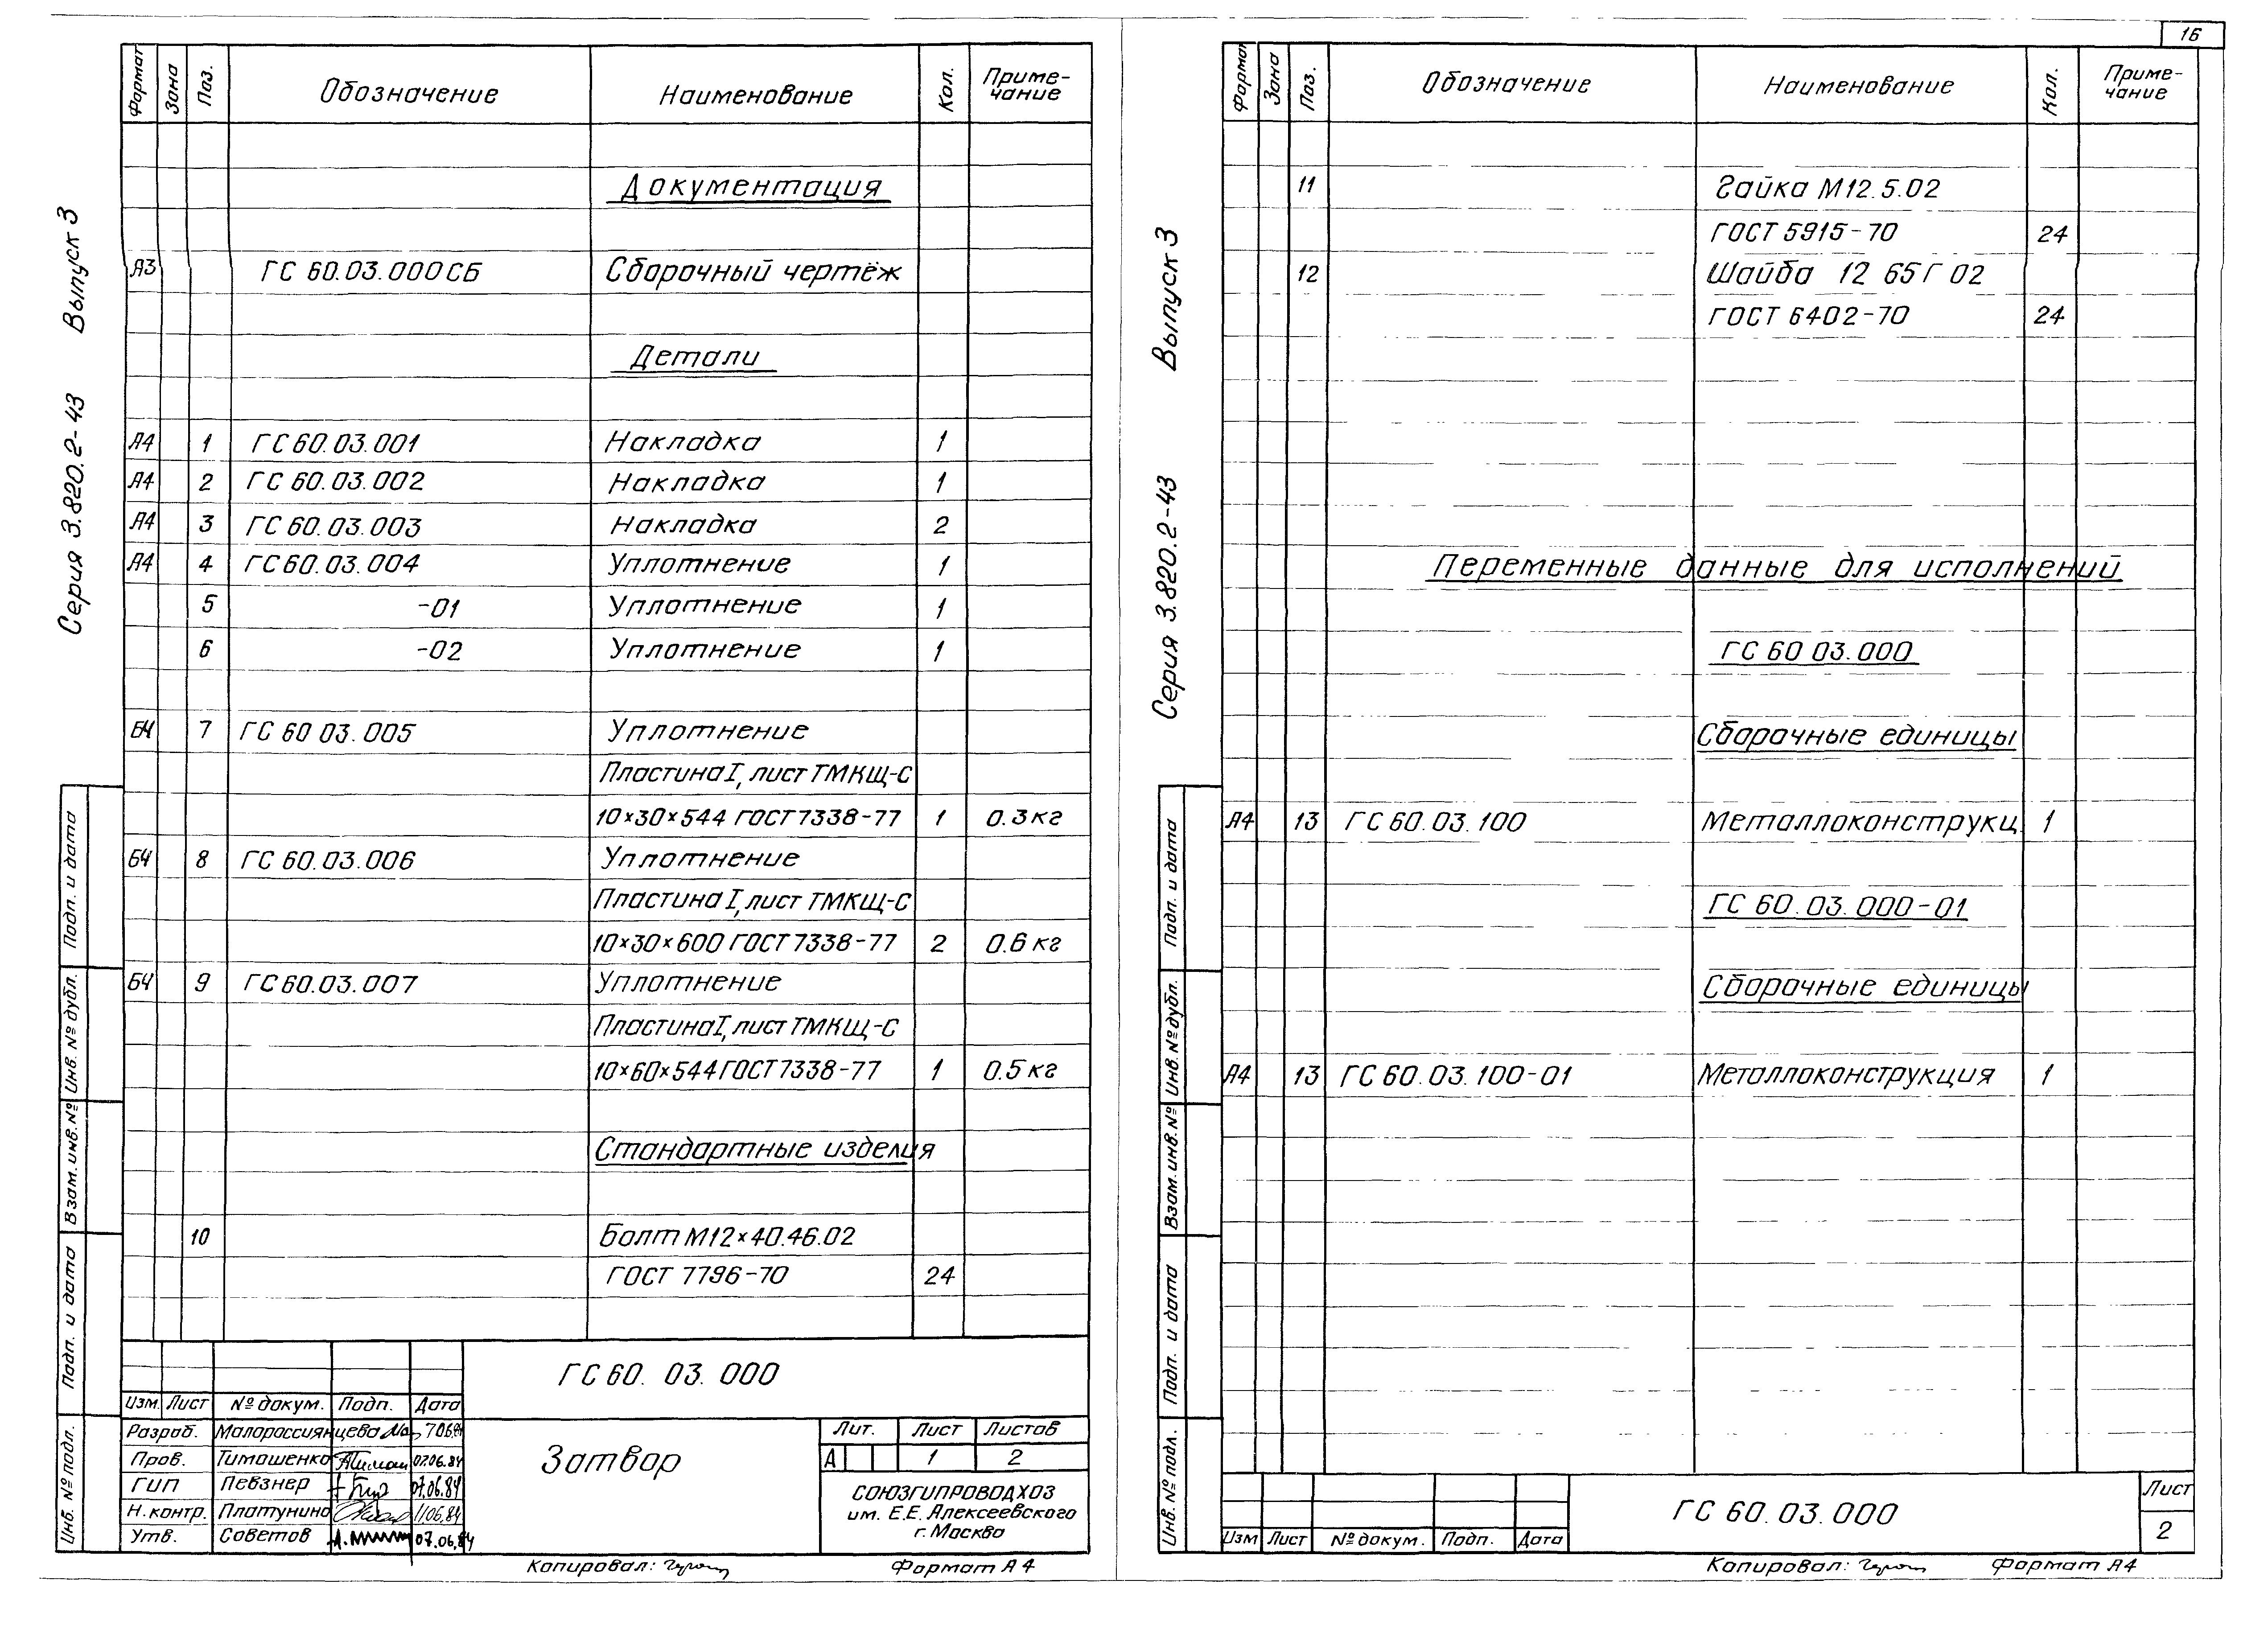 16
Серия 3.820.2-43 Выпуск 3
Формат Зона Поз. Обозначение Наименование Кол. Приме-
чание
Документация
А3 ГС 60.03.000СБ Сборочный чертёж
Детали
А4 1 ГС 60.03.001 Накладка 1
А4 2 ГС 60.03.002 Накладка 1
А4 3 ГС 60.03.003 Накладка 2
А4 4 ГС 60.03.004 Уплотнение 1
5 -01 Уплотнение 1
6 -02 Уплотнение 1
БЧ 7 ГС 60 03.005 Уплотнение
Пластина I, лист ТМКЩ-С
10×30×544 ГОСТ 7338-77 1 0.3 кг
БЧ 8 ГС 60.03.006 Уплотнение
Пластина I, лист ТМКЩ-С
10×30×600 ГОСТ 7338-77 2 0.6 кг
БЧ 9 ГС 60.03.007 Уплотнение
Пластина I, лист ТМКЩ-С
10×60×544 ГОСТ 7338-77 1 0.5 кг
Стандартные изделия
10 Болт М12×40.46.02
ГОСТ 7796-70 24
Подп. и дата
Инв. № дубл.
Взам. инв. №
Подп. и дата
Инв. № подл.
ГС 60. 03. 000
Изм. Лист № докум. Подп. Дата
Разраб. Малороссиянцева 7.06.84
Пров. Тимошенко 07.06.84
ГИП Певзнер 07.06.84
Н.контр. Платунина 11.06.84
Утв. Советов 07.06.84
Затвор
Лит. Лист Листов
А 1 2
СОЮЗГИПРОВОДХОЗ
им. Е.Е. Алексеевского
г. Москва
Копировал: Формат А4
Серия 3.820.2-43 Выпуск 3
Формат Зона Поз. Обозначение Наименование Кол. Приме-
чание
11 Гайка М12.5.02
ГОСТ 5915-70 24
12 Шайба 12 65Г 02
ГОСТ 6402-70 24
Переменные данные для исполнений
ГС 60 03.000
Сборочные единицы
А4 13 ГС 60.03.100 Металлоконструкц. 1
ГС 60.03.000-01
Сборочные единицы
А4 13 ГС 60.03.100-01 Металлоконструкция 1
Подп. и дата
Инв. № дубл.
Взам. инв. №
Подп. и дата
Инв. № подл.
Изм Лист № докум. Подп. Дата
ГС 60.03.000
Лист
2
Копировал: Формат А4